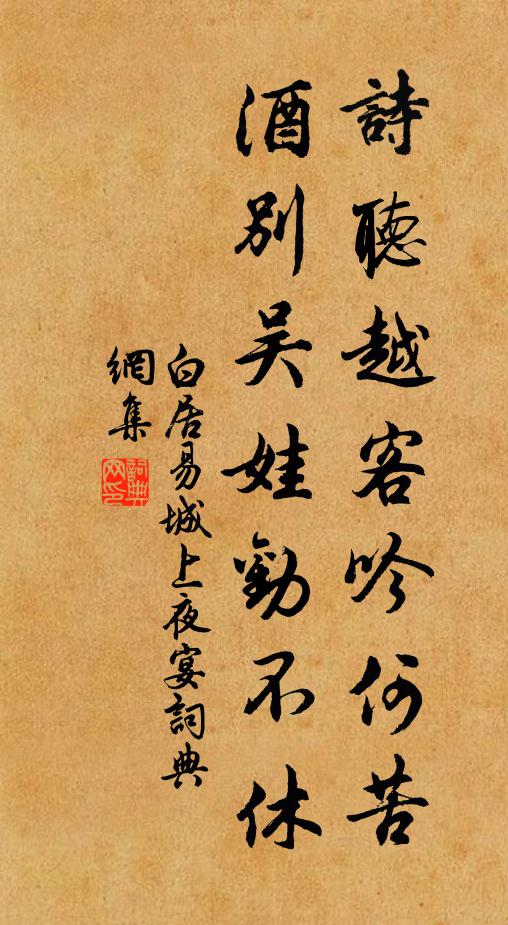 詩聽越客吟何苦
酒別吴娃勸不休
白居易城上夜宴詞典
網集
詞典网印